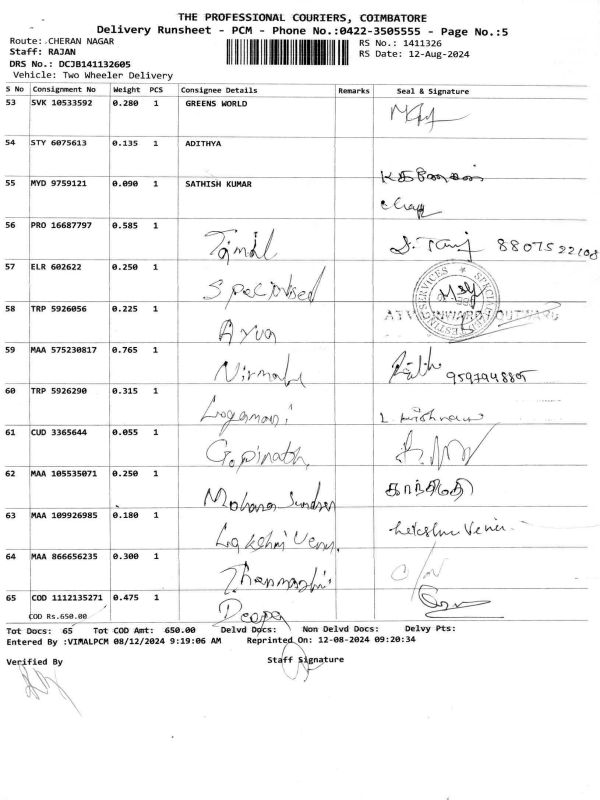 THE PROFESSIONAL COURIERS, COIMBATORE
Delivery Runsheet - PCM - Phone No.:0422-3505555 - Page No.:5
Route: CHERAN NAGAR
RS No.: 1411326
Staff: RAJAN
RS Date: 12-Aug-2024
DRS No.: DCJB141132605
Vehicle: Two Wheeler Delivery
S No Consignment No Weight PCS Consignee Details Remarks Seal & Signature
53 SVK 10533592 0.280 1 GREENS WORLD
54 STY 6075613 0.135 1 ADITHYA
55 MYD 9759121 0.090 1 SATHISH KUMAR
56 PRO 16687797 0.585 1
Tamil 8807522108
57 ELR 602622 0.250 1
Specialised
58 TRP 5926056 0.225 1
Arun
59 MAA 575230817 0.765 1
Nirmala 9597948805
60 TRP 5926290 0.315 1
Logamani L. Krishnan
61 CUD 3365644 0.055 1
Gopinath
62 MAA 105535071 0.250 1
Mohana Sundram காந்திமதி
63 MAA 109926985 0.180 1
Lakshmi Venu.
64 MAA 866656235 0.300 1
65 COD 1112135271 0.475 1
Deepa
COD Rs.650.00
Tot Docs: 65 Tot COD Amt: 650.00 Delvd Docs: Non Delvd Docs: Delvy Pts:
Entered By :VIMALPCM 08/12/2024 9:19:06 AM Reprinted On: 12-08-2024 09:20:34
Verified By Staff Signature